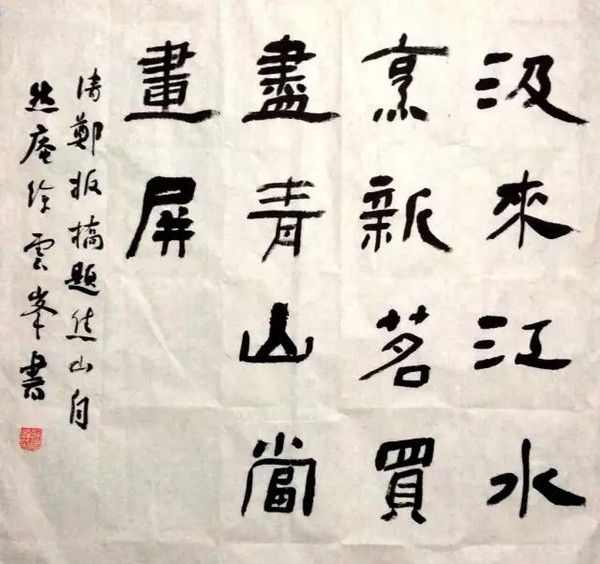 汲來江水
烹新茗買
盡青山當
畫屏
清鄭板橋題焦山自
然庵徐雲峯書